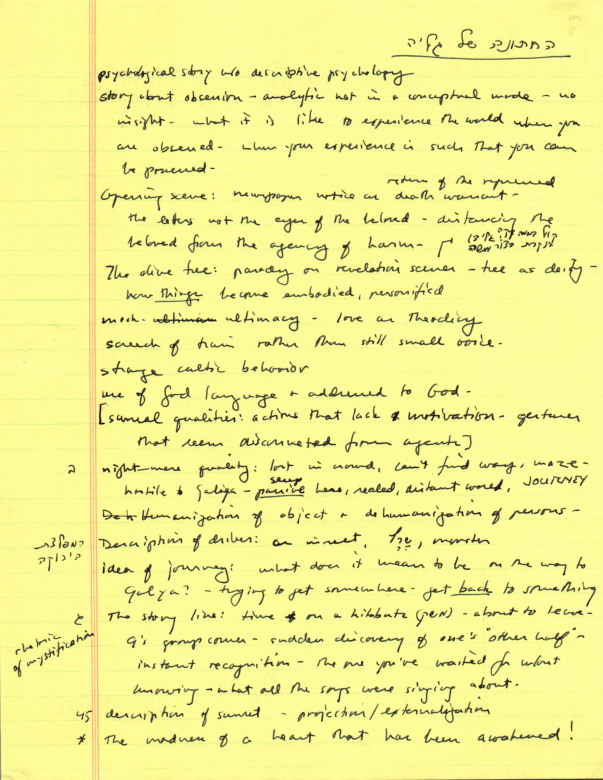 החתונה של גליה
psychological story w/o descriptive psychology
story about obsession - analytic not in a conceptual mode - no
insight - what it is like to experience the world when you
are obsessed - when your experience is such that you can
be possessed -
return of the repressed
Opening scene: newspaper notice as death warrant -
the letters not the eyes of the beloved - distancing the
beloved from the agency of harm -
The olive tree: parody on revelation scenes - tree as deity -
how things become embodied, personified
mock- ultimum ultimacy - love as theodicy
screech of train rather than still small voice -
strange cultic behavior
use of God language + addressed to God -
[surreal qualities: actions that lack motivation - gestures
that seem disconnected from agents]
ב night-mare quality: lost in crowd, can't find way, maze -
hostile to Galya - passive hero, sealed, distant world, JOURNEY
Humanization of object + dehumanization of persons -
המפלצת
הירוקה
Description of driver: an insect, monster
idea of journey: what does it mean to be on the way to
Galya? - trying to get somewhere - get back to something
The story line: time on a kibbutz (גרעין) - about to leave -
G's group comes - sudden discovery of one's "other half" -
rhetoric
of mystification
instant recognition - the one you've waited for without
knowing - what all the songs were singing about.
45 description of sunset - projection/externalization
* The madness of a heart that has been awakened!